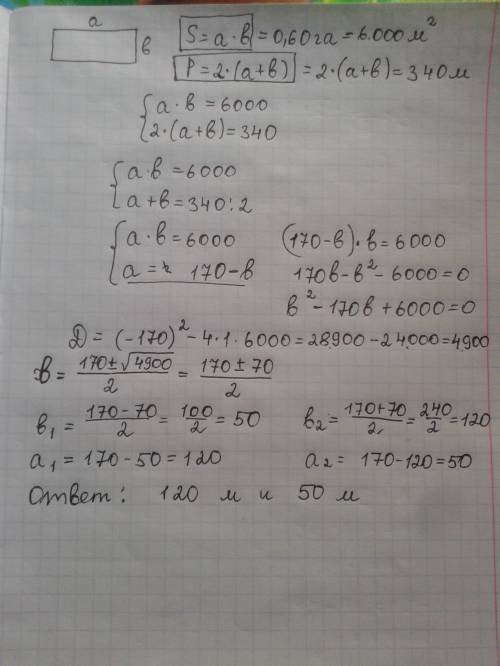 a
в
S = a · в = 0,60 га = 6.000 м²
P = 2·(a+в) = 2·(a+в) = 340 м
{ a · в = 6000
2·(a+в) = 340
{ a·в = 6000
a+в = 340:2
{ a·в = 6000 (170-в)·в = 6000
a = 170-в 170в-в²-6000=0
в²-170в+6000=0
D = (-170)² - 4·1·6000 = 28.900 - 24.000 = 4.900
в = (170±√4900)/2 = (170±70)/2
в₁ = (170-70)/2 = 100/2 = 50 в₂ = (170+70)/2 = 240/2 = 120
a₁ = 170-50 = 120 a₂ = 170-120 = 50
Ответ: 120 м и 50 м